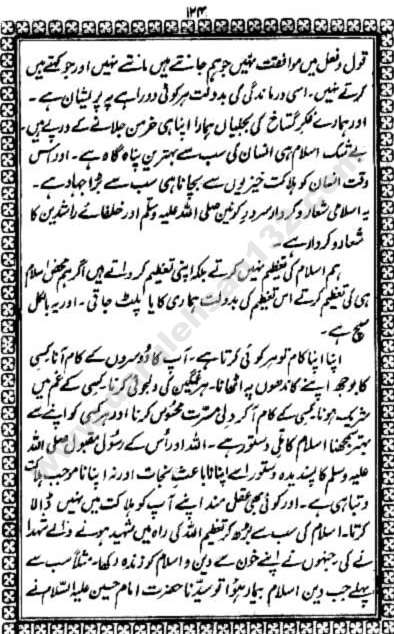 ۱۲۴
قول و فعل میں موافقت نہیں جو ہم جانتے ہیں مانتے نہیں اور جو کہتے ہیں
کرتے نہیں۔ اسی درماندگی کی بدولت ہر کوئی دوراہے پر پریشان ہے۔
اور ہمارے فکرِ گستاخ کی بجلیاں ہمارا اپنا ہی خرمن جلانے کے درپے ہیں۔
بے شک اسلام ہی انسان کی سب سے بہترین پناہ گاہ ہے۔ اور کس
وقت انسان کو ہلاکت خیزیوں سے بچانا ہی سب سے بڑا جہاد ہے۔
یہ اسلامی شعار و کردار سرورِ کونین صلی اللہ علیہ وسلم اور خلفائے راشدین کا
شعار و کردار ہے۔
ہم اسلام کی تعظیم نہیں کرتے بلکہ اپنی تعظیم کرواتے ہیں اگر ہم محض اسلام
ہی کی تعظیم کرتے اس تعظیم کی بدولت ہماری کایا پلٹ جاتی۔ اور یہ بالکل
سچ ہے۔
اپنا اپنا کام تو ہر کوئی کرتا ہے۔ آپ کا دُوسروں کے کام آنا کِسی
کا بوجھ اپنے کاندھوں پہ اٹھانا۔ ہر غمگین کی دلجوئی کرنا۔ کِسی کے غم میں
شریک ہونا۔ کِسی کے کام آ کر دِلی مسرت محسُوس کرنا اور ہر کسی کو اپنے سے
بہتر سمجھنا اسلام کا مِلّی دستور ہے۔ اللہ اور اُس کے رسُولِ مقبول صلی اللہ
علیہ وسلم کا پسندیدہ دستور اسے اپنانا باعثِ نجات اور نہ اپنانا موجب ہلاکت
و تباہی ہے۔ اور کوئی بھی عقل مند اپنے آپ کو ہلاکت میں نہیں ڈالا
کرتا۔ اسلام کی سب سے بڑھ کر تعظیم اللہ کی راہ میں شہید ہونے والے شہدا
نے کی جنہوں نے اپنے خون سے دین و اسلام کو زندہ رکھا۔ مثلاً سب سے
پہلے جب دین اسلام بیمار ہوا تو سیّدنا حضرت امام حسین علیہ السّلام نے